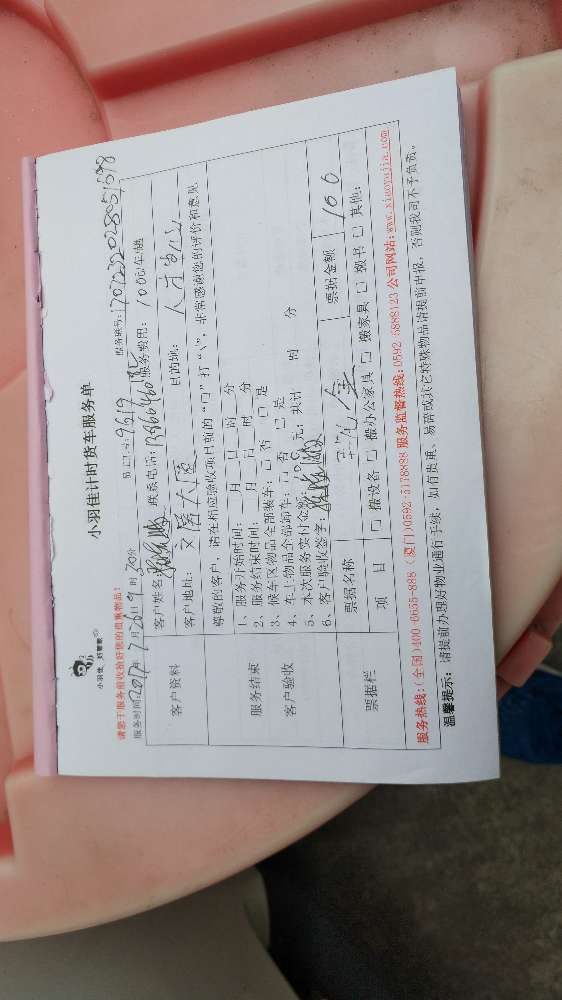 小羽佳计时货车服务单
小羽佳 好管家
请您于服务前收捡好您的贵重物品!
服务时间:2017年7月26日9时30分 员工工号:9619 服务账号:1707232028851598
客户资料 客户姓名: 联系电话: 服务费用:100元/车趟
客户地址: 文居大厦 目的地: 人才中心
尊敬的客户,请在相应验收项目前的“口”打“√”,非常感谢您的评价和意见
服务结束
客户验收
1、服务开始时间: 月 日 时 分
2、服务结束时间: 月 日 时 分
3、候车区物品全部装车:□否 □是
4、车上物品全部卸车:□否 □是
5、本次服务实付金额: 元;共计 时 分
6、客户验收签字:
票据栏 票据名称 票据金额 100
项 目 □ 搬设备 □ 搬办公家具 □ 搬家具 □ 搬书 □ 其他:
服务热线:(全国)400-0655-888 (厦门)0592-5178888 服务监督热线:0592-5888123 公司网站:www.xiaoyujia.com
温馨提示:请提前办理好物业通行手续,如有贵重、易碎或其它特殊物品请提前申报,否则我司不予负责。